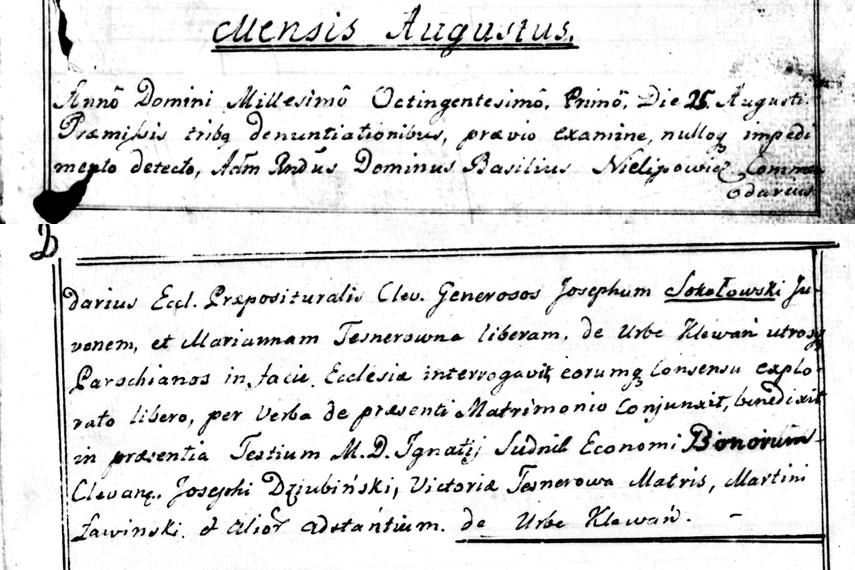 Mensis Augustus.
Annô Domini Millesimô Octingentesimô, Primô, Die 25 Augusti.
Præmißis tribq denuntiationibus, prævio examine, nulloq impedi
mento detecto, Adm Rndus Dominus Basilius Nielipowicz Commen
odarius
darius Eccl. Præposituralis Clev. Generosos Josephum Sokołowski Ju-
venem, et Mariannam Tesnerowna liberam, de Urbe Klewań utrosq
Parochianos in facie Ecclesiæ interrogavit, eorumq Consensu explo-
rato libero, per Verba de præsenti Matrimonio Conjunxit, benedixit
in præsentia Testium M. D. Ignatij Sudnik Economi Bonorum
Clevanę. Josephi Dziubiński, Victoriæ Tesnerowa Matris, Martini
Ławinski. et alior adstantium. de Urbe Klewań. –